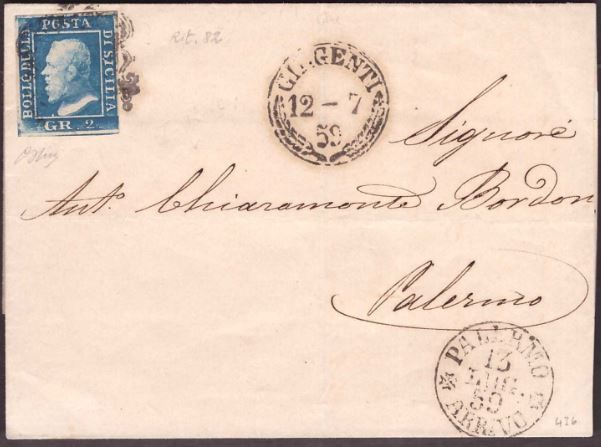 BOLLO DELLA POSTA DI SICILIA
GR. 2.
Rit. 82
GIRGENTI
12 - 7
59
Signore
Ant.o Chiaramonte Bordon
Palermo
PALERMO
13
LUG.
59
ARRIVO
436